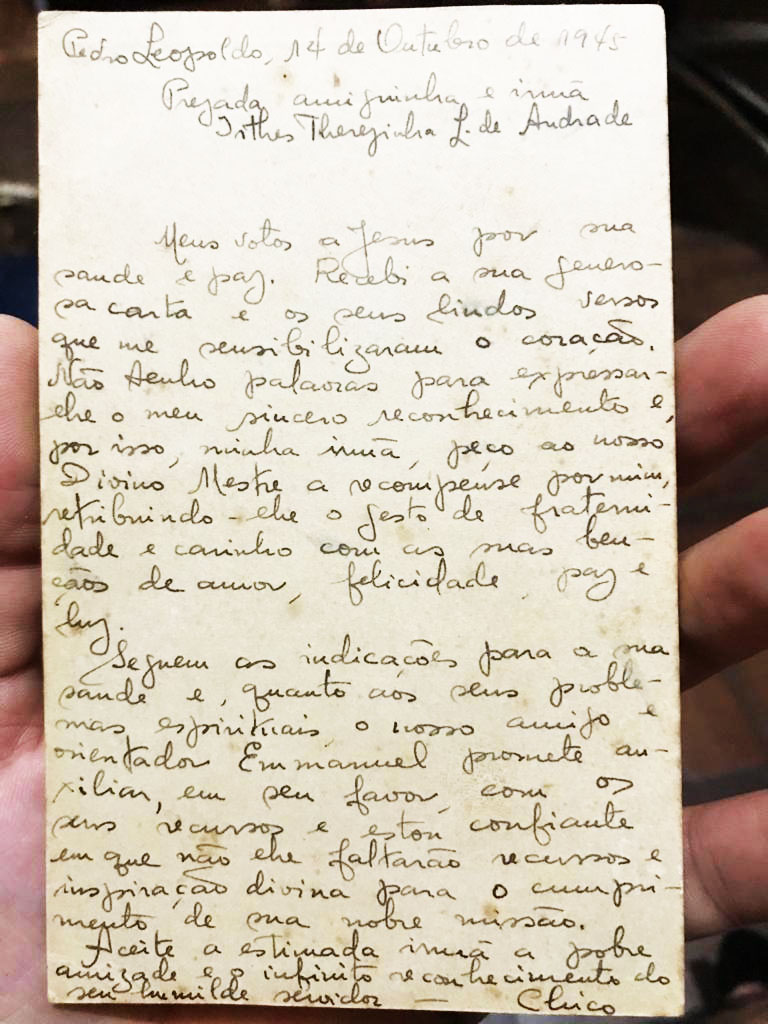 Pedro Leopoldo, 14 de Outubro de 1945
Prezada amiguinha e irmã
Isthes Therezinha L. de Andrade
Meus votos a Jesus por sua
saude e paz. Recebi a sua genero-
sa carta e os seus lindos versos
que me sensibilizaram o coração.
Não tenho palavras para expressar-
lhe o meu sincero reconhecimento e,
por isso, minha irmã, peço ao nosso
Divino Mestre a recompense por mim,
retribuindo-lhe o gesto de fraterni-
dade e carinho com as suas ben-
çãos de amor, felicidade, paz e
luz.
Seguem as indicações para a sua
saude e, quanto aos seus proble-
mas espirituais, o nosso amigo e
orientador Emmanuel promete au-
xiliar, em seu favor, com os
seus recursos e estou confiante
em que não lhe faltarão recursos e
inspiração divina para o cumpri-
mento de sua nobre missão.
Aceite a estimada irmã a pobre
amizade e o infinito reconhecimento do
seu humilde servidor — Chico